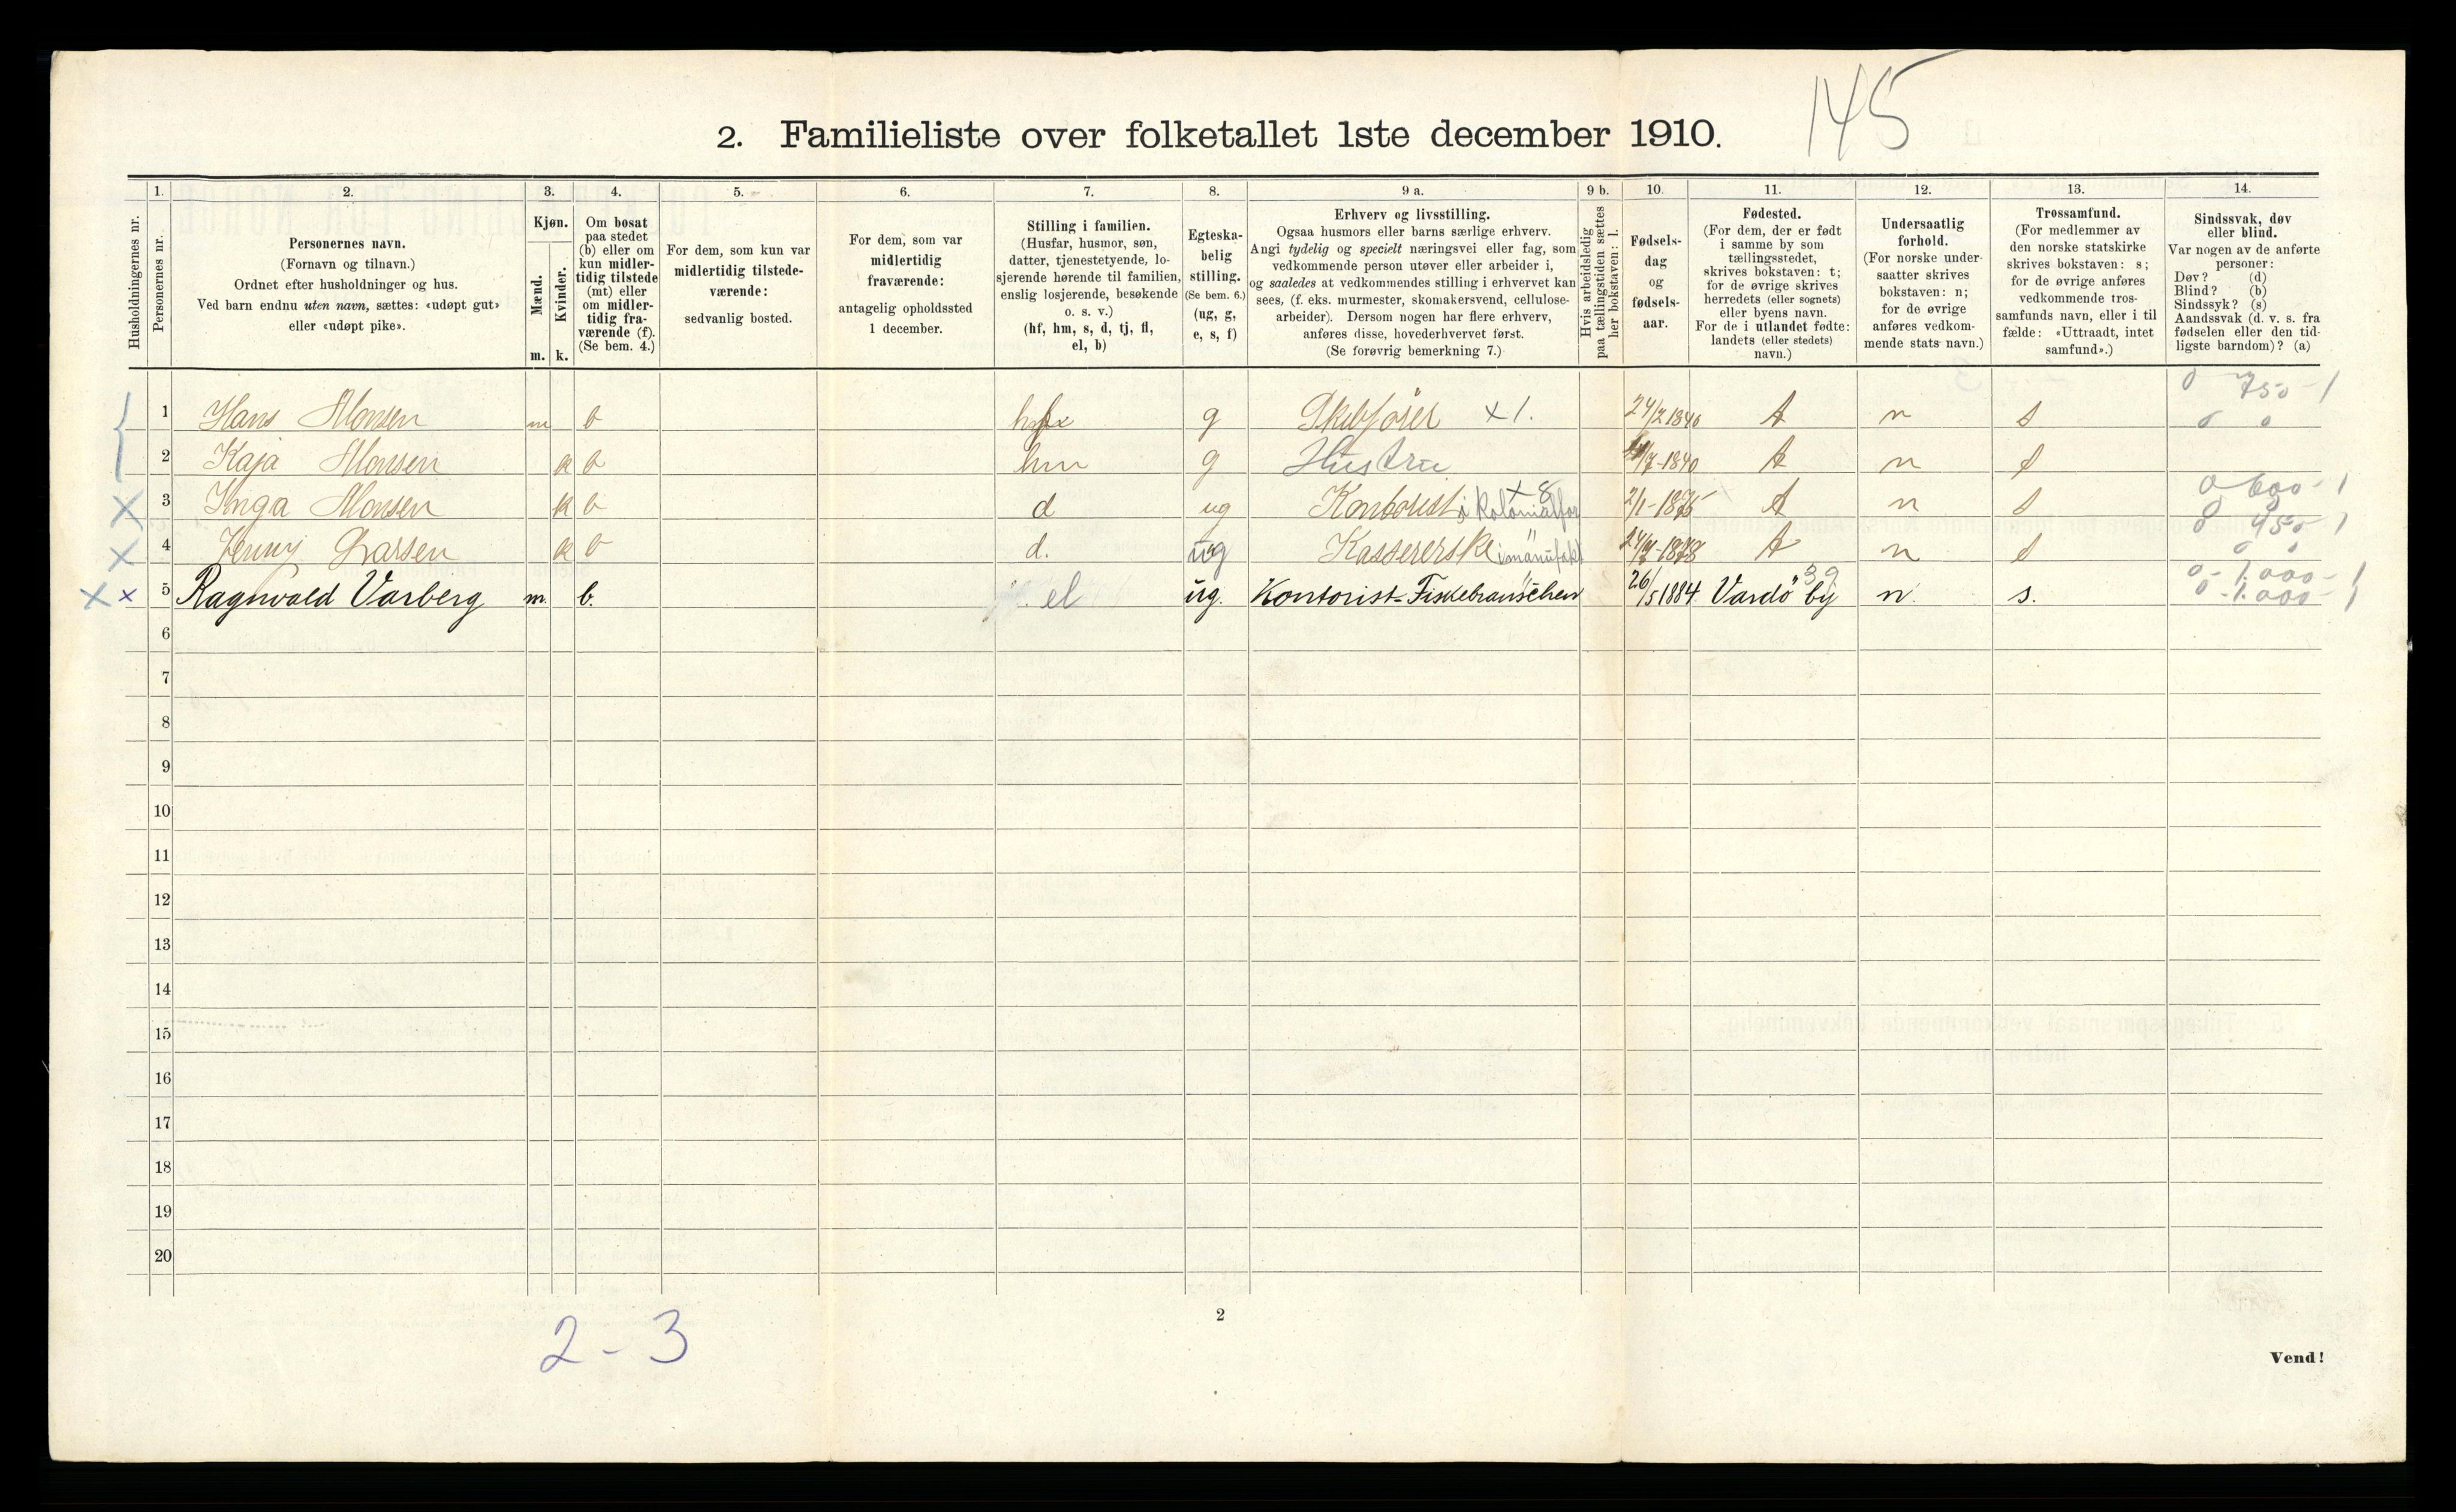 145
2. Familieliste over folketallet 1ste december 1910.
Husholdningernes nr.
1.
Personernes nr.
2.
Personernes navn.
(Fornavn og tilnavn.)
Ordnet efter husholdninger og hus.
Ved barn endnu uten navn, sættes: «udøpt gut»
eller «udøpt pike».
3.
Kjøn.
Mænd.
Kvinder.
m. k.
4.
Om bosat
paa stedet
(b) eller om
kun midler-
tidig tilstede
(mt) eller
om midler-
tidig fra-
værende (f).
(Se bem. 4.)
5.
For dem, som kun var
midlertidig tilstede-
værende:
sedvanlig bosted.
6.
For dem, som var
midlertidig
fraværende:
antagelig opholdssted
1 december.
7.
Stilling i familien.
(Husfar, husmor, søn,
datter, tjenestetyende, lo-
sjerende hørende til familien,
enslig losjerende, besøkende
o. s. v.)
(hf, hm, s, d, tj, fl,
el, b)
8.
Egteska-
belig
stilling.
(Se bem. 6.)
(ug, g,
e, s, f)
9 a.
Erhverv og livsstilling.
Ogsaa husmors eller barns særlige erhverv.
Angi tydelig og specielt næringsvei eller fag, som
vedkommende person utøver eller arbeider i,
og saaledes at vedkommendes stilling i erhvervet kan
sees, (f. eks. murmester, skomakersvend, cellulose-
arbeider). Dersom nogen har flere erhverv,
anføres disse, hovederhvervet først.
(Se forøvrig bemerkning 7.)
9 b.
Hvis arbeidsledig
paa tællingstiden sættes
her bokstaven: l.
10.
Fødsels-
dag
og
fødsels-
aar.
11.
Fødested.
(For dem, der er født
i samme by som
tællingsstedet,
skrives bokstaven: t;
for de øvrige skrives
herredets (eller sognets)
eller byens navn.
For de i utlandet fødte:
landets (eller stedets)
navn.)
12.
Undersaatlig
forhold.
(For norske under-
saatter skrives
bokstaven: n;
for de øvrige
anføres vedkom-
mende stats navn.)
13.
Trossamfund.
(For medlemmer av
den norske statskirke
skrives bokstaven: s;
for de øvrige anføres
vedkommende tros-
samfunds navn, eller i til
fælde: «Uttraadt, intet
samfund».)
14.
Sindssvak, døv
eller blind.
Var nogen av de anførte
personer:
Døv? (d)
Blind? (b)
Sindssyk? (s)
Aandssvak (d. v. s. fra
fødselen eller den tid-
ligste barndom)? (a)
1 Hans Monsen m b g Skibfører x1. 24/2 1840 t n s 0 750 - 1 0 0
2 Kaja Monsen k b hm g Hustru 7-1840 t n s
3 Inga Monsen k b d ug Kontorist i kolonialfor x 8 2/1-1875 t n s 0 600 - 1
4 Jenny Larsen k b d. ug Kassererske i manufakt 1878 t n s 0 950 - 1 0 0
x 5 Ragnvald Varberg m. b. el ug. Kontorist-Fiskebranschen 26/5 1884 Vardö by 39 n s. 0 - 1.000 - 1 0 - 1.000 - 1
6
7
8
9
10
11
12
13
14
15
16
17
18
19
20
2
2 - 3
Vend!